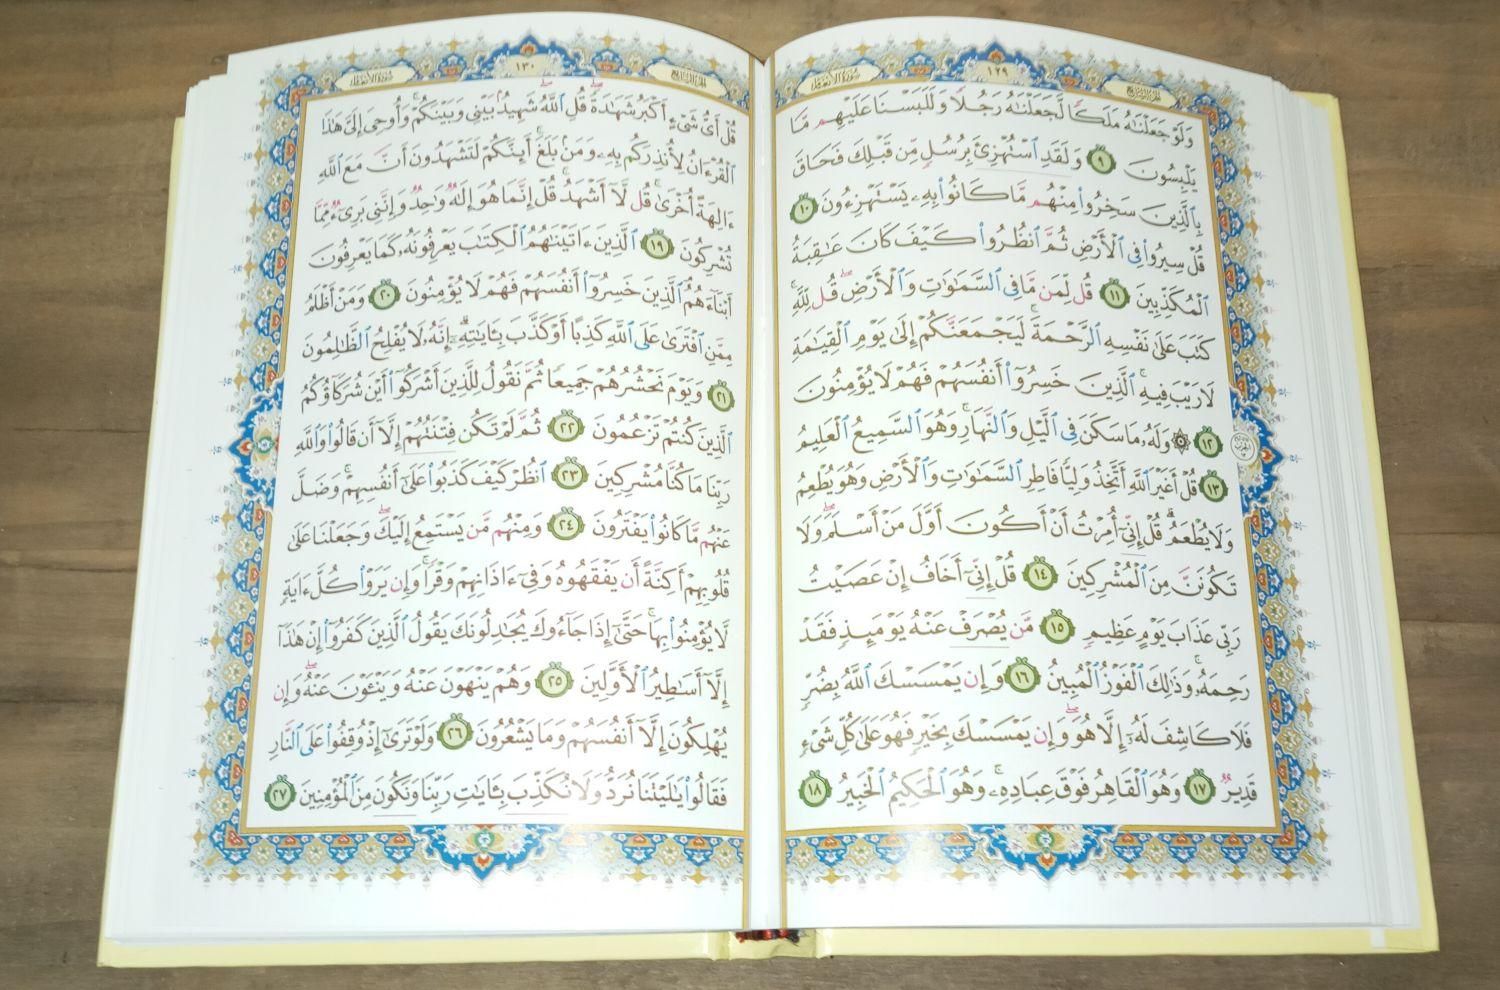 سورة الأنعام ١٢٩ الجزء السابع
وَلَوْ جَعَلْنَٰهُ مَلَكًا لَّجَعَلْنَٰهُ رَجُلًا وَلَلَبَسْنَا عَلَيْهِم مَّا
يَلْبِسُونَ ٩ وَلَقَدِ ٱسْتُهْزِئَ بِرُسُلٍ مِّن قَبْلِكَ فَحَاقَ
بِٱلَّذِينَ سَخِرُوا۟ مِنْهُم مَّا كَانُوا۟ بِهِۦ يَسْتَهْزِءُونَ ١٠
قُلْ سِيرُوا۟ فِى ٱلْأَرْضِ ثُمَّ ٱنظُرُوا۟ كَيْفَ كَانَ عَٰقِبَةُ
ٱلْمُكَذِّبِينَ ١١ قُل لِّمَن مَّا فِى ٱلسَّمَٰوَٰتِ وَٱلْأَرْضِ ۖ قُل لِّلَّهِ ۚ
كَتَبَ عَلَىٰ نَفْسِهِ ٱلرَّحْمَةَ ۚ لَيَجْمَعَنَّكُمْ إِلَىٰ يَوْمِ ٱلْقِيَٰمَةِ
لَا رَيْبَ فِيهِ ۚ ٱلَّذِينَ خَسِرُوٓا۟ أَنفُسَهُمْ فَهُمْ لَا يُؤْمِنُونَ
١٢ ۞ وَلَهُۥ مَا سَكَنَ فِى ٱلَّيْلِ وَٱلنَّهَارِ ۚ وَهُوَ ٱلسَّمِيعُ ٱلْعَلِيمُ
١٣ قُلْ أَغَيْرَ ٱللَّهِ أَتَّخِذُ وَلِيًّا فَاطِرِ ٱلسَّمَٰوَٰتِ وَٱلْأَرْضِ وَهُوَ يُطْعِمُ
وَلَا يُطْعَمُ ۗ قُلْ إِنِّىٓ أُمِرْتُ أَنْ أَكُونَ أَوَّلَ مَنْ أَسْلَمَ ۖ وَلَا
تَكُونَنَّ مِنَ ٱلْمُشْرِكِينَ ١٤ قُلْ إِنِّىٓ أَخَافُ إِنْ عَصَيْتُ
رَبِّى عَذَابَ يَوْمٍ عَظِيمٍ ١٥ مَّن يُصْرَفْ عَنْهُ يَوْمَئِذٍ فَقَدْ
رَحِمَهُۥ ۚ وَذَٰلِكَ ٱلْفَوْزُ ٱلْمُبِينُ ١٦ وَإِن يَمْسَسْكَ ٱللَّهُ بِضُرٍّ
فَلَا كَاشِفَ لَهُۥٓ إِلَّا هُوَ ۖ وَإِن يَمْسَسْكَ بِخَيْرٍ فَهُوَ عَلَىٰ كُلِّ شَىْءٍ
قَدِيرٌ ١٧ وَهُوَ ٱلْقَاهِرُ فَوْقَ عِبَادِهِۦ ۚ وَهُوَ ٱلْحَكِيمُ ٱلْخَبِيرُ ١٨
سورة الأنعام ١٣٠ الجزء السابع
قُلْ أَىُّ شَىْءٍ أَكْبَرُ شَهَٰدَةً ۖ قُلِ ٱللَّهُ ۖ شَهِيدٌۢ بَيْنِى وَبَيْنَكُمْ ۚ وَأُوحِىَ إِلَىَّ هَٰذَا
ٱلْقُرْءَانُ لِأُنذِرَكُم بِهِۦ وَمَنۢ بَلَغَ ۚ أَئِنَّكُمْ لَتَشْهَدُونَ أَنَّ مَعَ ٱللَّهِ
ءَالِهَةً أُخْرَىٰ ۚ قُل لَّآ أَشْهَدُ ۚ قُلْ إِنَّمَا هُوَ إِلَٰهٌ وَٰحِدٌ وَإِنَّنِى بَرِىٓءٌ مِّمَّا
تُشْرِكُونَ ١٩ ٱلَّذِينَ ءَاتَيْنَٰهُمُ ٱلْكِتَٰبَ يَعْرِفُونَهُۥ كَمَا يَعْرِفُونَ
أَبْنَآءَهُمُ ۘ ٱلَّذِينَ خَسِرُوٓا۟ أَنفُسَهُمْ فَهُمْ لَا يُؤْمِنُونَ ٢٠ وَمَنْ أَظْلَمُ
مِمَّنِ ٱفْتَرَىٰ عَلَى ٱللَّهِ كَذِبًا أَوْ كَذَّبَ بِـَٔايَٰتِهِۦٓ ۗ إِنَّهُۥ لَا يُفْلِحُ ٱلظَّٰلِمُونَ
٢١ وَيَوْمَ نَحْشُرُهُمْ جَمِيعًا ثُمَّ نَقُولُ لِلَّذِينَ أَشْرَكُوٓا۟ أَيْنَ شُرَكَآؤُكُمُ
ٱلَّذِينَ كُنتُمْ تَزْعُمُونَ ٢٢ ثُمَّ لَمْ تَكُن فِتْنَتُهُمْ إِلَّآ أَن قَالُوا۟ وَٱللَّهِ
رَبِّنَا مَا كُنَّا مُشْرِكِينَ ٢٣ ٱنظُرْ كَيْفَ كَذَبُوا۟ عَلَىٰٓ أَنفُسِهِمْ ۚ وَضَلَّ
عَنْهُم مَّا كَانُوا۟ يَفْتَرُونَ ٢٤ وَمِنْهُم مَّن يَسْتَمِعُ إِلَيْكَ ۖ وَجَعَلْنَا عَلَىٰ
قُلُوبِهِمْ أَكِنَّةً أَن يَفْقَهُوهُ وَفِىٓ ءَاذَانِهِمْ وَقْرًا ۚ وَإِن يَرَوْا۟ كُلَّ ءَايَةٍ
لَّا يُؤْمِنُوا۟ بِهَا ۚ حَتَّىٰٓ إِذَا جَآءُوكَ يُجَٰدِلُونَكَ يَقُولُ ٱلَّذِينَ كَفَرُوٓا۟ إِنْ هَٰذَآ
إِلَّآ أَسَٰطِيرُ ٱلْأَوَّلِينَ ٢٥ وَهُمْ يَنْهَوْنَ عَنْهُ وَيَنْـَٔوْنَ عَنْهُ ۖ وَإِن
يُهْلِكُونَ إِلَّآ أَنفُسَهُمْ وَمَا يَشْعُرُونَ ٢٦ وَلَوْ تَرَىٰٓ إِذْ وُقِفُوا۟ عَلَى ٱلنَّارِ
فَقَالُوا۟ يَٰلَيْتَنَا نُرَدُّ وَلَا نُكَذِّبَ بِـَٔايَٰتِ رَبِّنَا وَنَكُونَ مِنَ ٱلْمُؤْمِنِينَ ٢٧